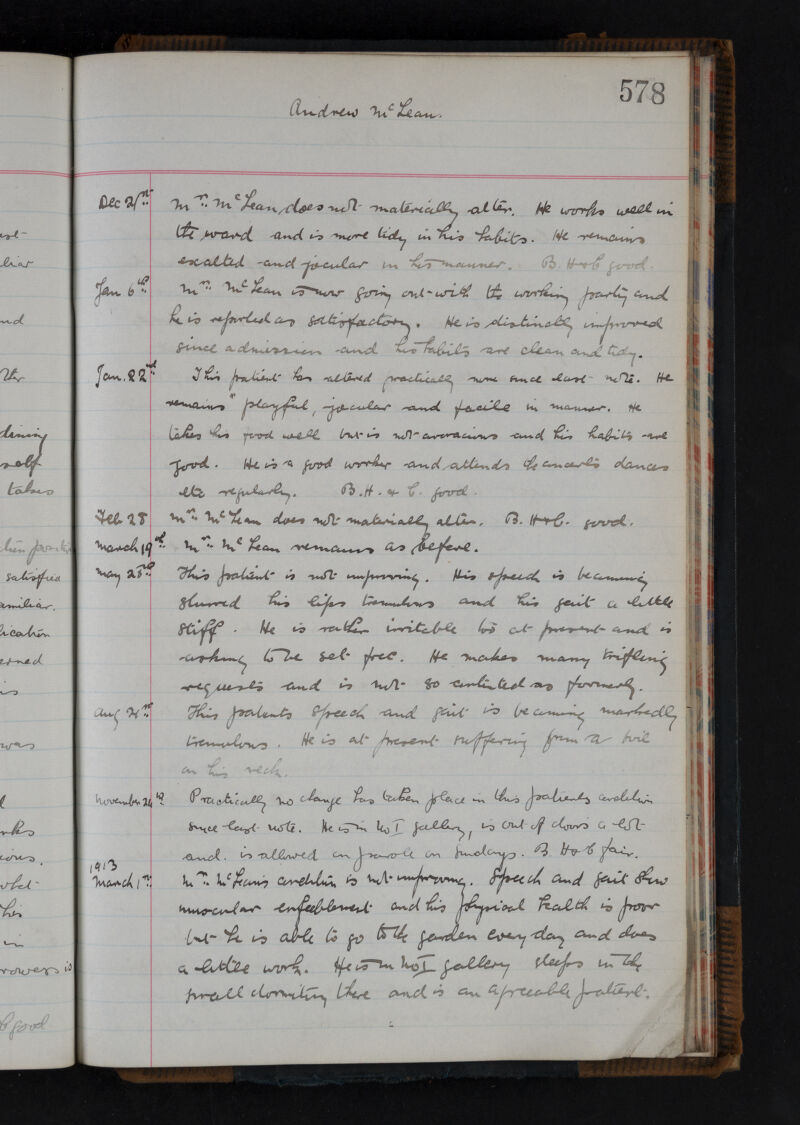 578
Andrew McLean.
Dec 21st Mr. McLean does not materially alter. He works well in
the ward and is more tidy in his habits. He remains
exalted and jocular in his manner. B. H & b good.
Jan 6th Mr. McLean is now going out with the working party and
he is reported as satisfactory. He is distinctly improved
since admission and his habits are clean and tidy.
Jan. 22nd This patient has altered practically none since last note. He
remains playful, jocular and facile in manner. He
takes his food well but is not avaracious and his habits are
good. He is a good worker and attends concerts dances
etc regularly. B. H. & b. good.
Feb 28 Mr. McLean does not materially alter. B. H & b. good.
March 19th Mr. McLean remains as before.
May 28th This patient is not improving. His speech is becoming
slurred his lips tremulous and his gait a little
stiff. He is rather irritable too at present and is
asking to be set free. He makes many trifling
requests and is not so contented as formerly.
Aug 21st This patients speech and gait is becoming markedly
tremulous. He is at present suffering from a boil
on his neck.
November 24th Practically no change has taken place in this patients condition
since last note. He is in No I gallery, is out of doors a lot
and is allowed on parole on Sundays. B H & b fair.
1913
March 1st Mr. McLean's condition is not improving. Speech and gait show
muscular enfeeblement and his physical health is poor
but he is able to go to the garden every day and does
a little work. He is in No I gallery sleeps in the
small dormitory there and is an agreeable patient.
liar
nd
self
takes
satisfied
amiliar.
lication
is
was
his
in
b good